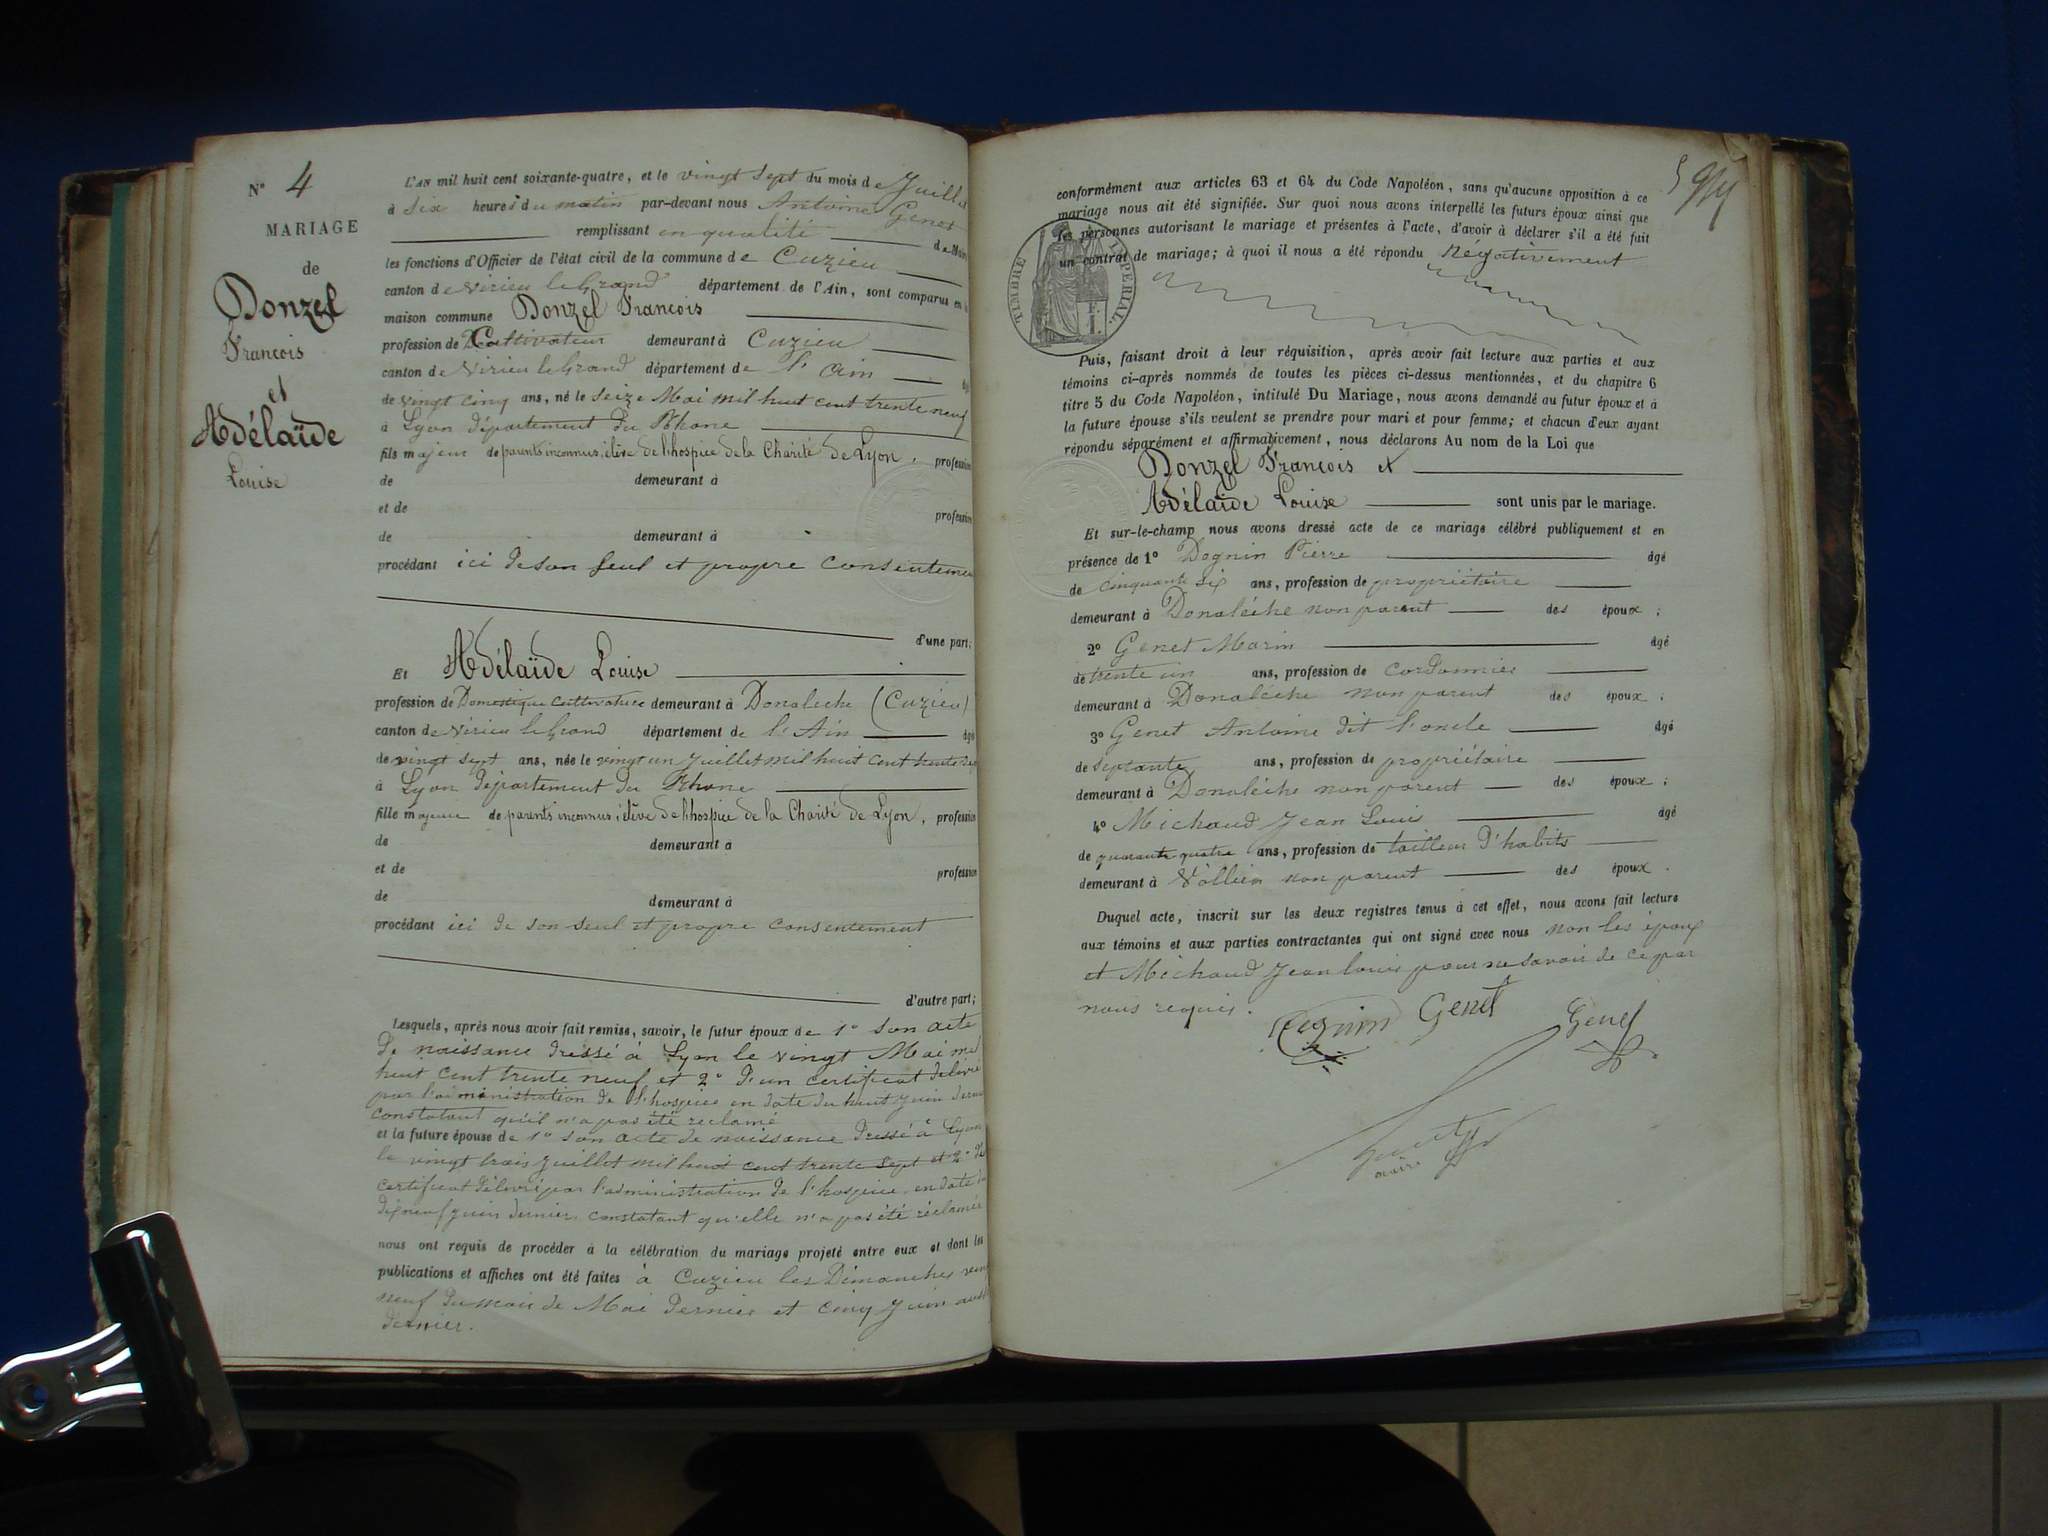 N° 4
MARIAGE
de
Donzel
François
et
Adélaïde
Louise
L'AN mil huit cent soixante-quatre, et le vingt sept du mois de Juillet
à six heures du matin par-devant nous Antoine Genet
remplissant en qualité de Maire
les fonctions d'Officier de l'état civil de la commune de Cuzieu
canton de Virieu le Grand département de l'Ain, sont comparus en la
maison commune Donzel François
profession de Cultivateur demeurant à Cuzieu
canton de Virieu le Grand département de l'Ain âgé
de vingt cinq ans, né le seize Mai mil huit cent trente neuf
à Lyon département du Rhone
fils majeur de parents inconnus, élève de l'hospice de la Charité de Lyon, profession
de demeurant à
et de profession
de demeurant à
procédant ici de son seul et propre consentement
d'une part;
Et Adélaïde Louise
profession de Domestique Cultivatrice demeurant à Donalèche (Cuzieu)
canton de Virieu le Grand département de l'Ain âgé
de vingt sept ans, née le vingt un Juillet mil huit cent trente sept
à Lyon département du Rhone
fille majeure de parents inconnus, élève de l'hospice de la Charité de Lyon, profession
de demeurant à
et de profession
de demeurant à
procédant ici de son seul et propre consentement
d'autre part;
Lesquels, après nous avoir fait remise, savoir, le futur époux de 1° son acte
de naissance dressé à Lyon le vingt Mai mil
huit cent trente neuf et 2° d'un certificat délivré
par l'administration de l'hospice en date du huit Juin dernier
constatant qu'il n'a pas été réclamé
et la future épouse de 1° son acte de naissance dressé à Lyon
le vingt trois Juillet mil huit cent trente sept et 2° d'un
certificat délivré par l'administration de l'hospice en date du
dixneuf juin dernier constatant qu'elle n'a pas été réclamée
nous ont requis de procéder à la célébration du mariage projeté entre eux et dont les
publications et affiches ont été faites à Cuzieu les Dimanches vingt
neuf du mois de Mai dernier et cinq Juin aussi
dernier.
conformément aux articles 63 et 64 du Code Napoléon, sans qu'aucune opposition à ce
mariage nous ait été signifiée. Sur quoi nous avons interpellé les futurs époux ainsi que
les personnes autorisant le mariage et présentes à l'acte, d'avoir à déclarer s'il a été fait
un contrat de mariage; à quoi il nous a été répondu Négativement
TIMBRE IMPÉRIAL
Puis, faisant droit à leur réquisition, après avoir fait lecture aux parties et aux
témoins ci-après nommés de toutes les pièces ci-dessus mentionnées, et du chapitre 6
titre 5 du Code Napoléon, intitulé Du Mariage, nous avons demandé au futur époux et à
la future épouse s'ils veulent se prendre pour mari et pour femme; et chacun d'eux ayant
répondu séparément et affirmativement, nous déclarons Au nom de la Loi que
Donzel François et
Adélaïde Louise sont unis par le mariage.
Et sur-le-champ nous avons dressé acte de ce mariage célébré publiquement et en
présence de 1° Dognin Pierre âgé
de cinquante six ans, profession de propriétaire
demeurant à Donalèche non parent des époux;
2° Genet Marin âgé
de trente un ans, profession de cordonnier
demeurant à Donalèche non parent des époux;
3° Genet Antoine dit l'oncle âgé
de septante ans, profession de propriétaire
demeurant à Donalèche non parent des époux;
4° Michaud Jean Louis âgé
de quarante quatre ans, profession de tailleur d'habits
demeurant à Vollien non parent des époux.
Duquel acte, inscrit sur les deux registres tenus à cet effet, nous avons fait lecture
aux témoins et aux parties contractantes qui ont signé avec nous non les époux
et Michaud Jean Louis pour ne savoir de ce par
nous requis.
Dognin Genet Genet
Genet
maire